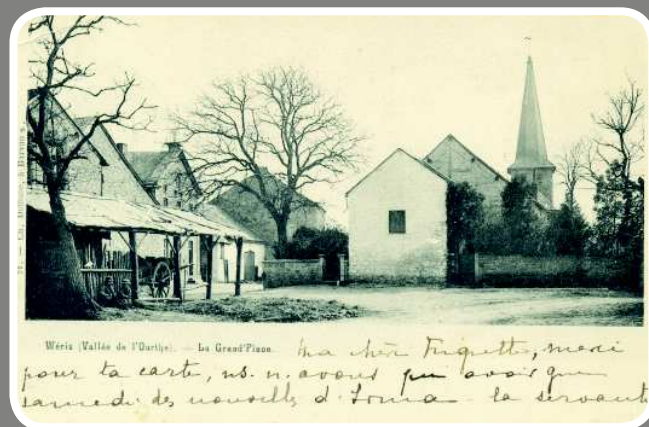 Wéris (Vallée de l'Ourthe). — La Grand'Place.
ma chère Friquette, merci
pour ta carte, ns. n. avons pu avoir que
samedi des nouvelles d' la servante